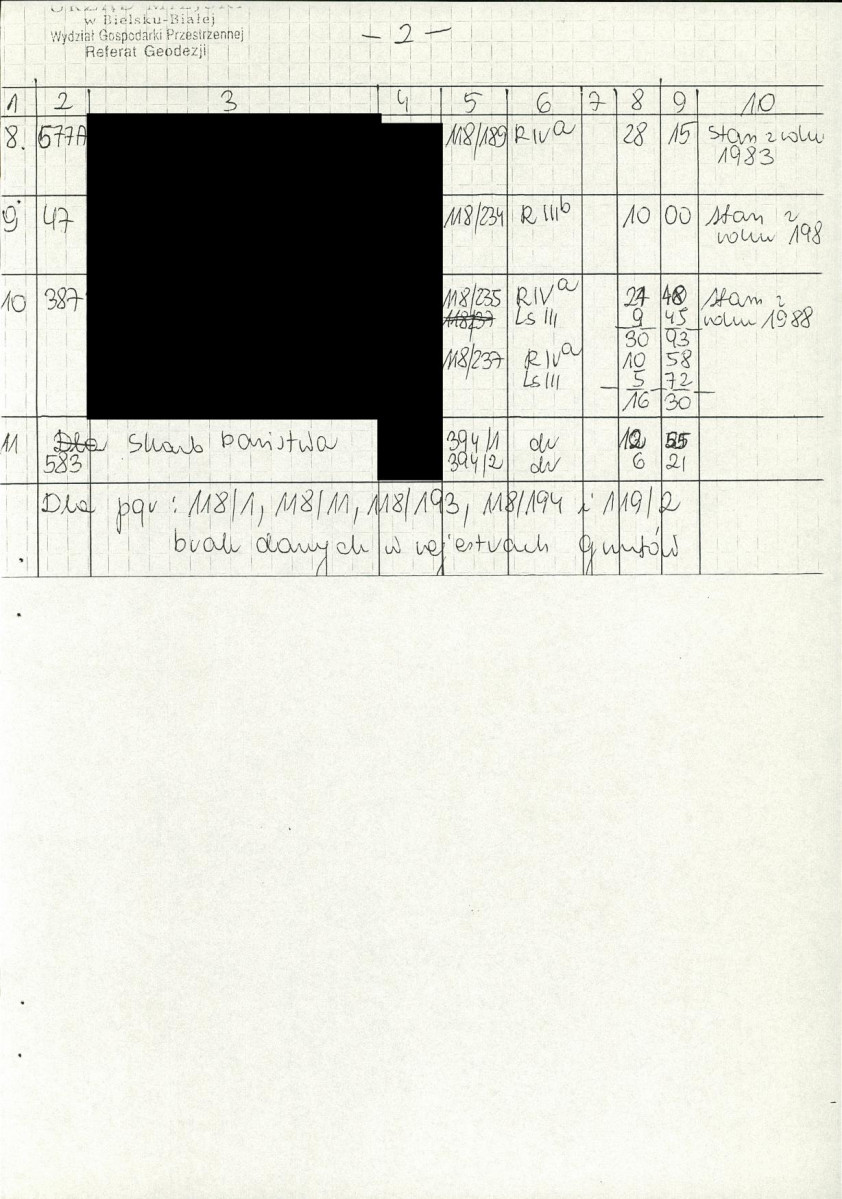 URZĄD MIEJSKI
w Bielsku-Białej
Wydział Gospodarki Przestrzennej
Referat Geodezji
- 2 -
1 2 3 4 5 6 7 8 9 10
8. 577A 118/189 RIVa 28 15 stan z roku
1983
9. 47 118/234 R IIIb 10 00 stan z
roku 198
10 387 118/235 RIVa 48 stan z
118/237 Ls III 9 45 roku 1988
30 93
118/237 RIVa 10 58
Ls III 5 72
16 30
11 Dla Skarb Państwa 394/1 dr 12 55
583 394/2 dr 6 21
Dla pgr : 118/1, 118/11, 118/193, 118/194 i 119/2
brak danych w rejestrach gruntów